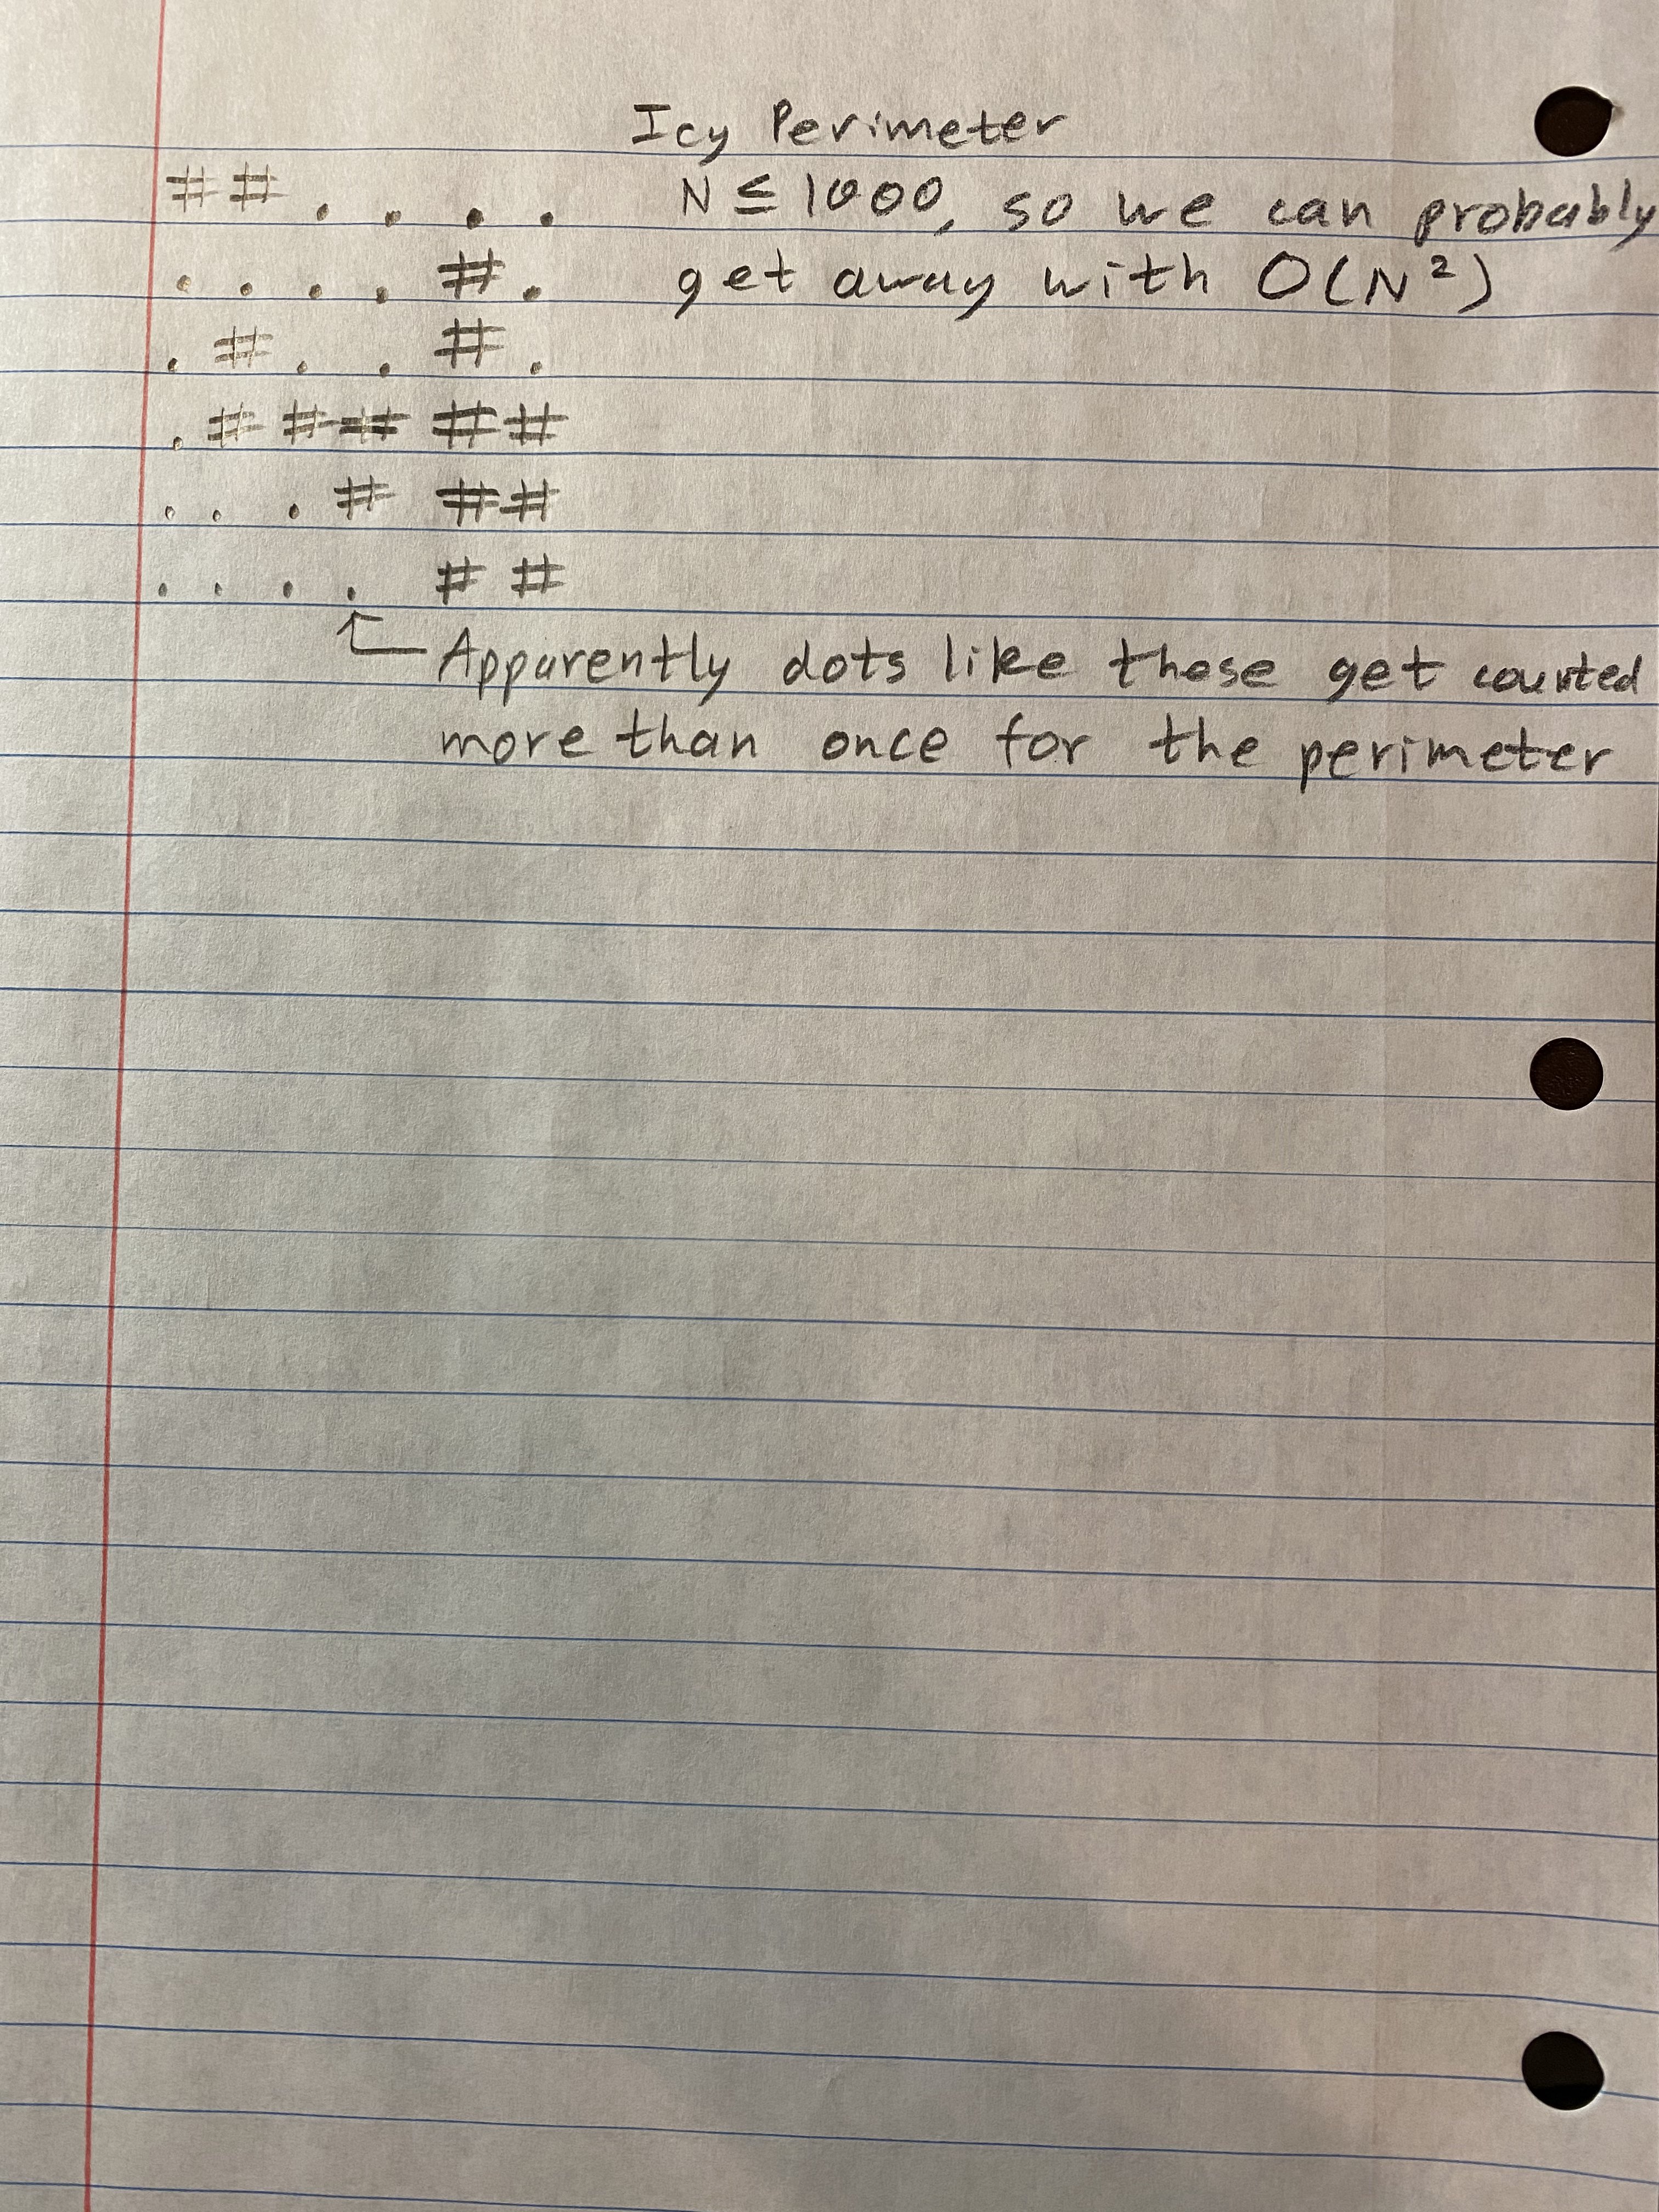 Icy Perimeter
##.... N ≤ 1000, so we can probably
....#. get away with O(N²)
.#..#.
.#####
...###
....##
Apparently dots like these get counted
more than once for the perimeter